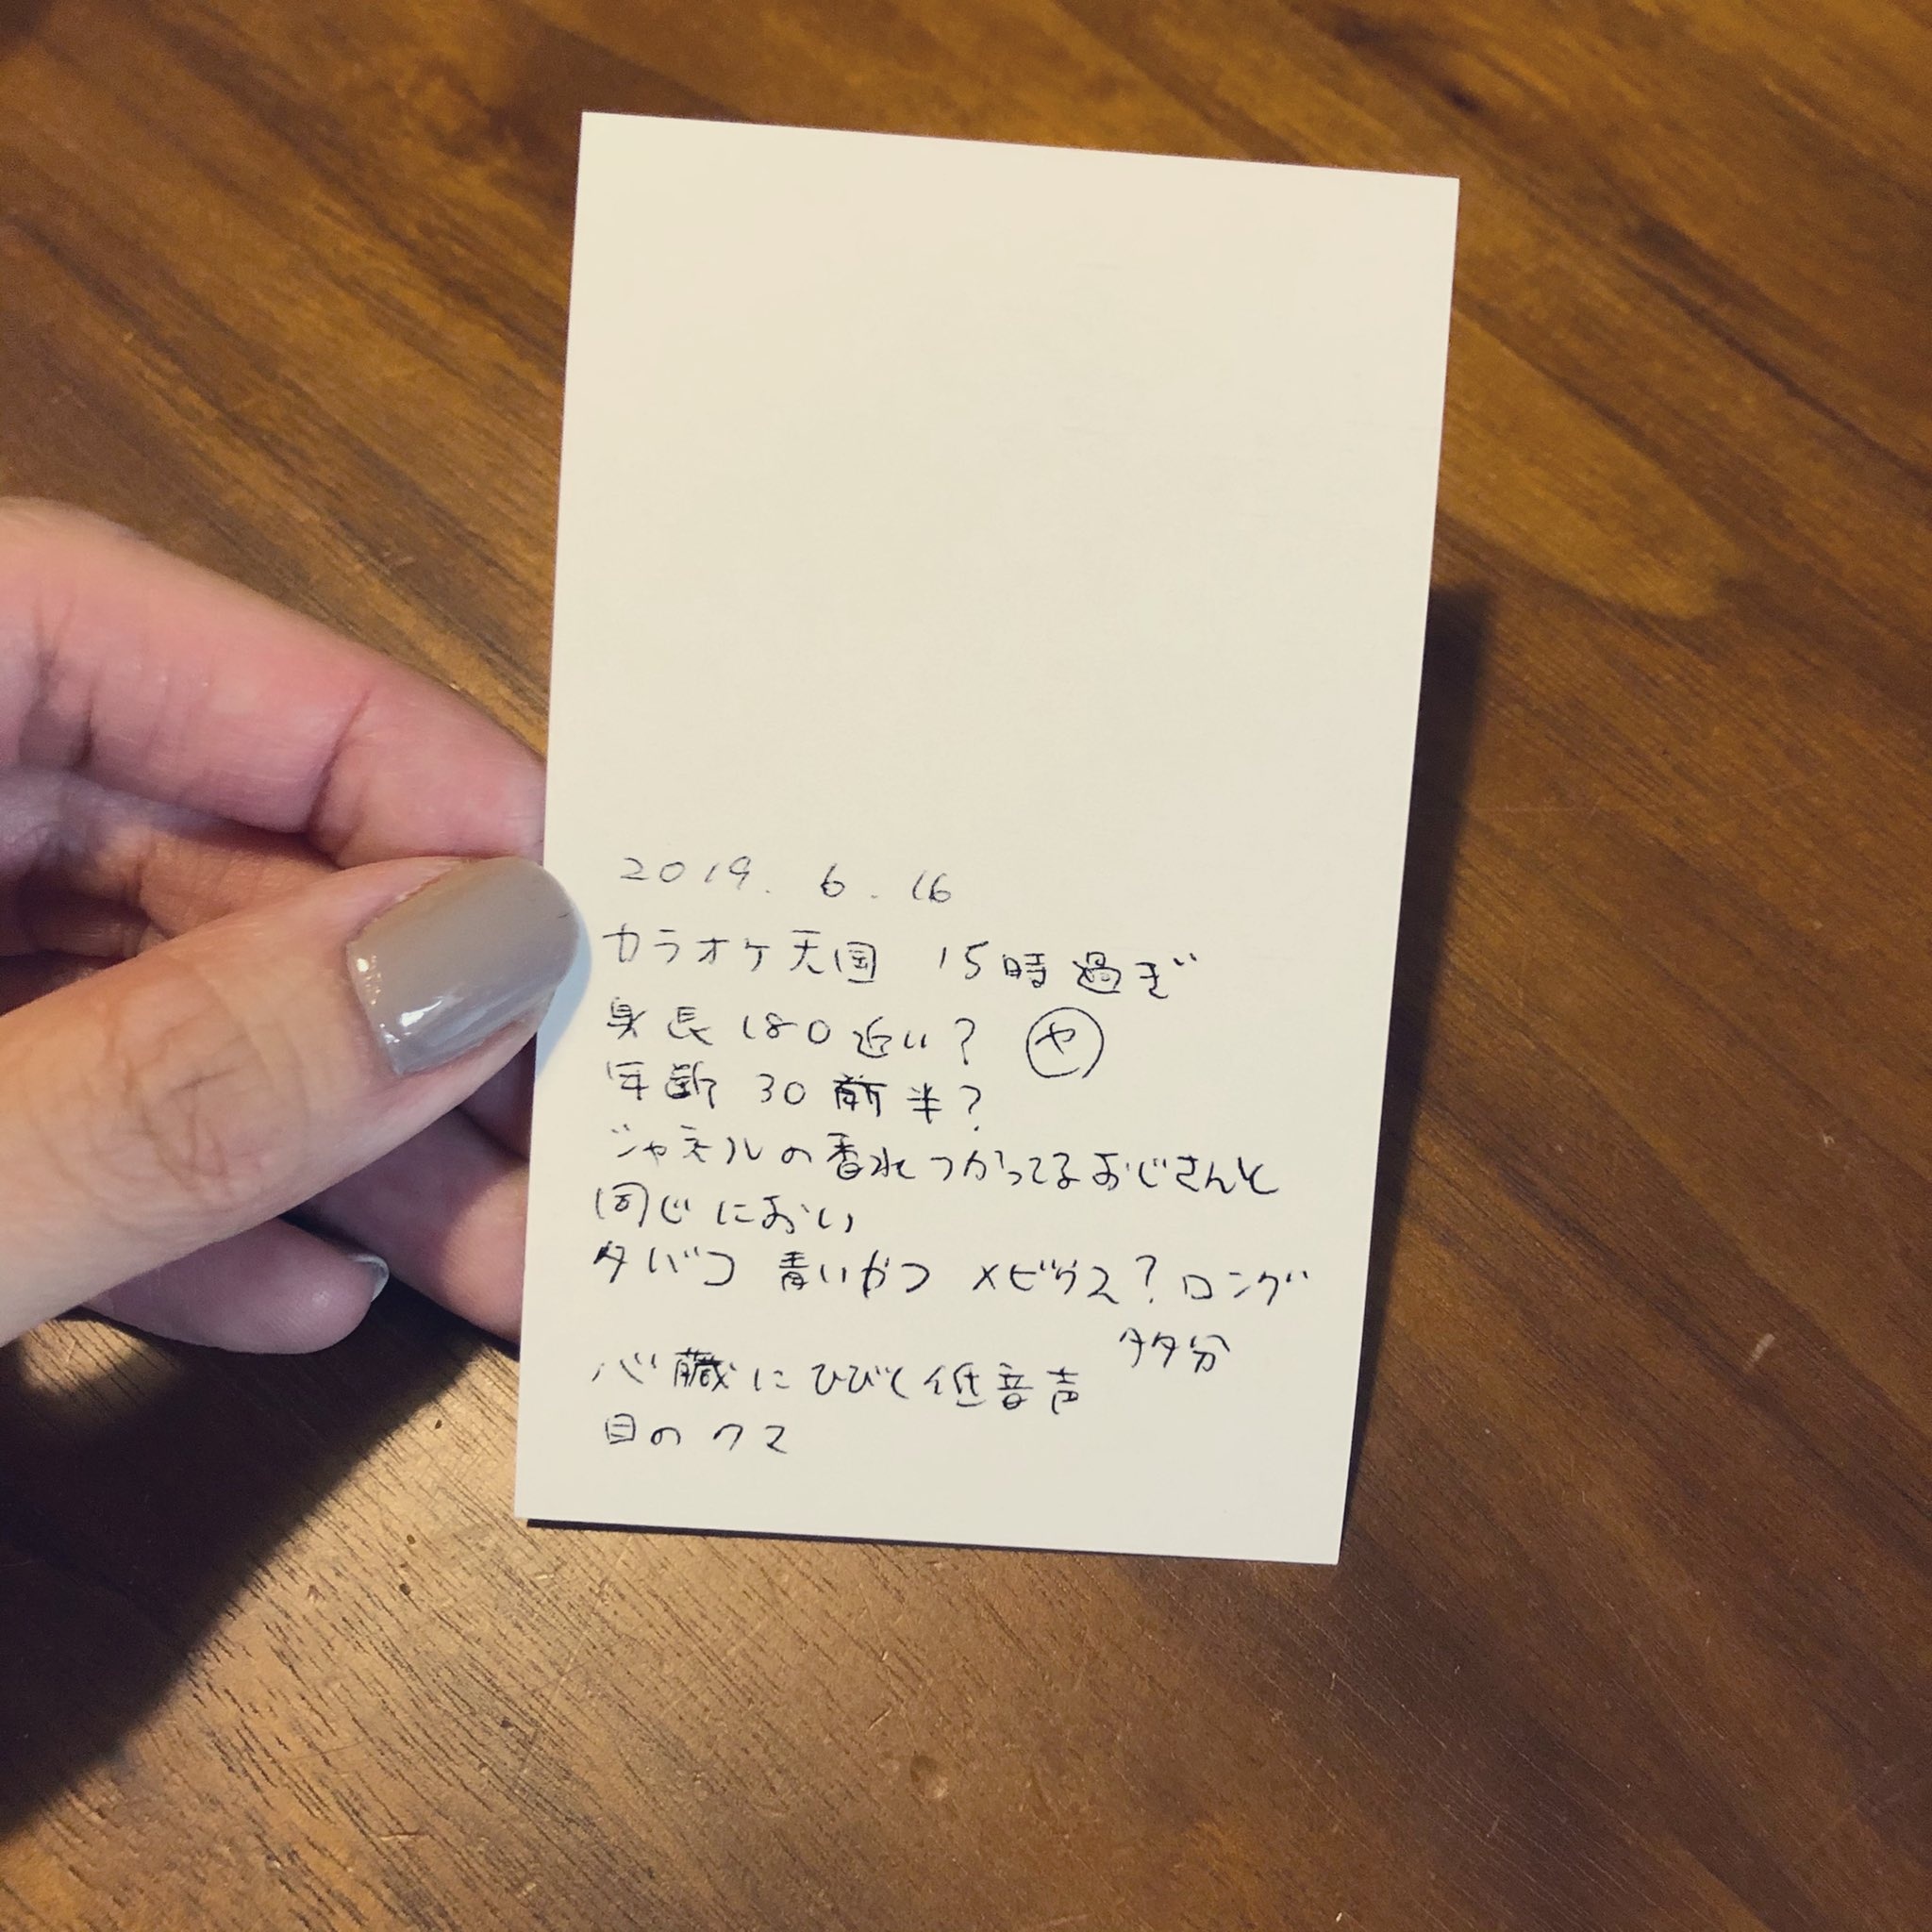 2019. 6. 16
カラオケ天国 15時過ぎ
身長180近い? ㋳
年齢 30前半?
シャネルの香水つかってるおじさんと
同じにおい
タバコ 青いやつ メビウス? ロング
多分
心臓にひびく低音声
目のクマ